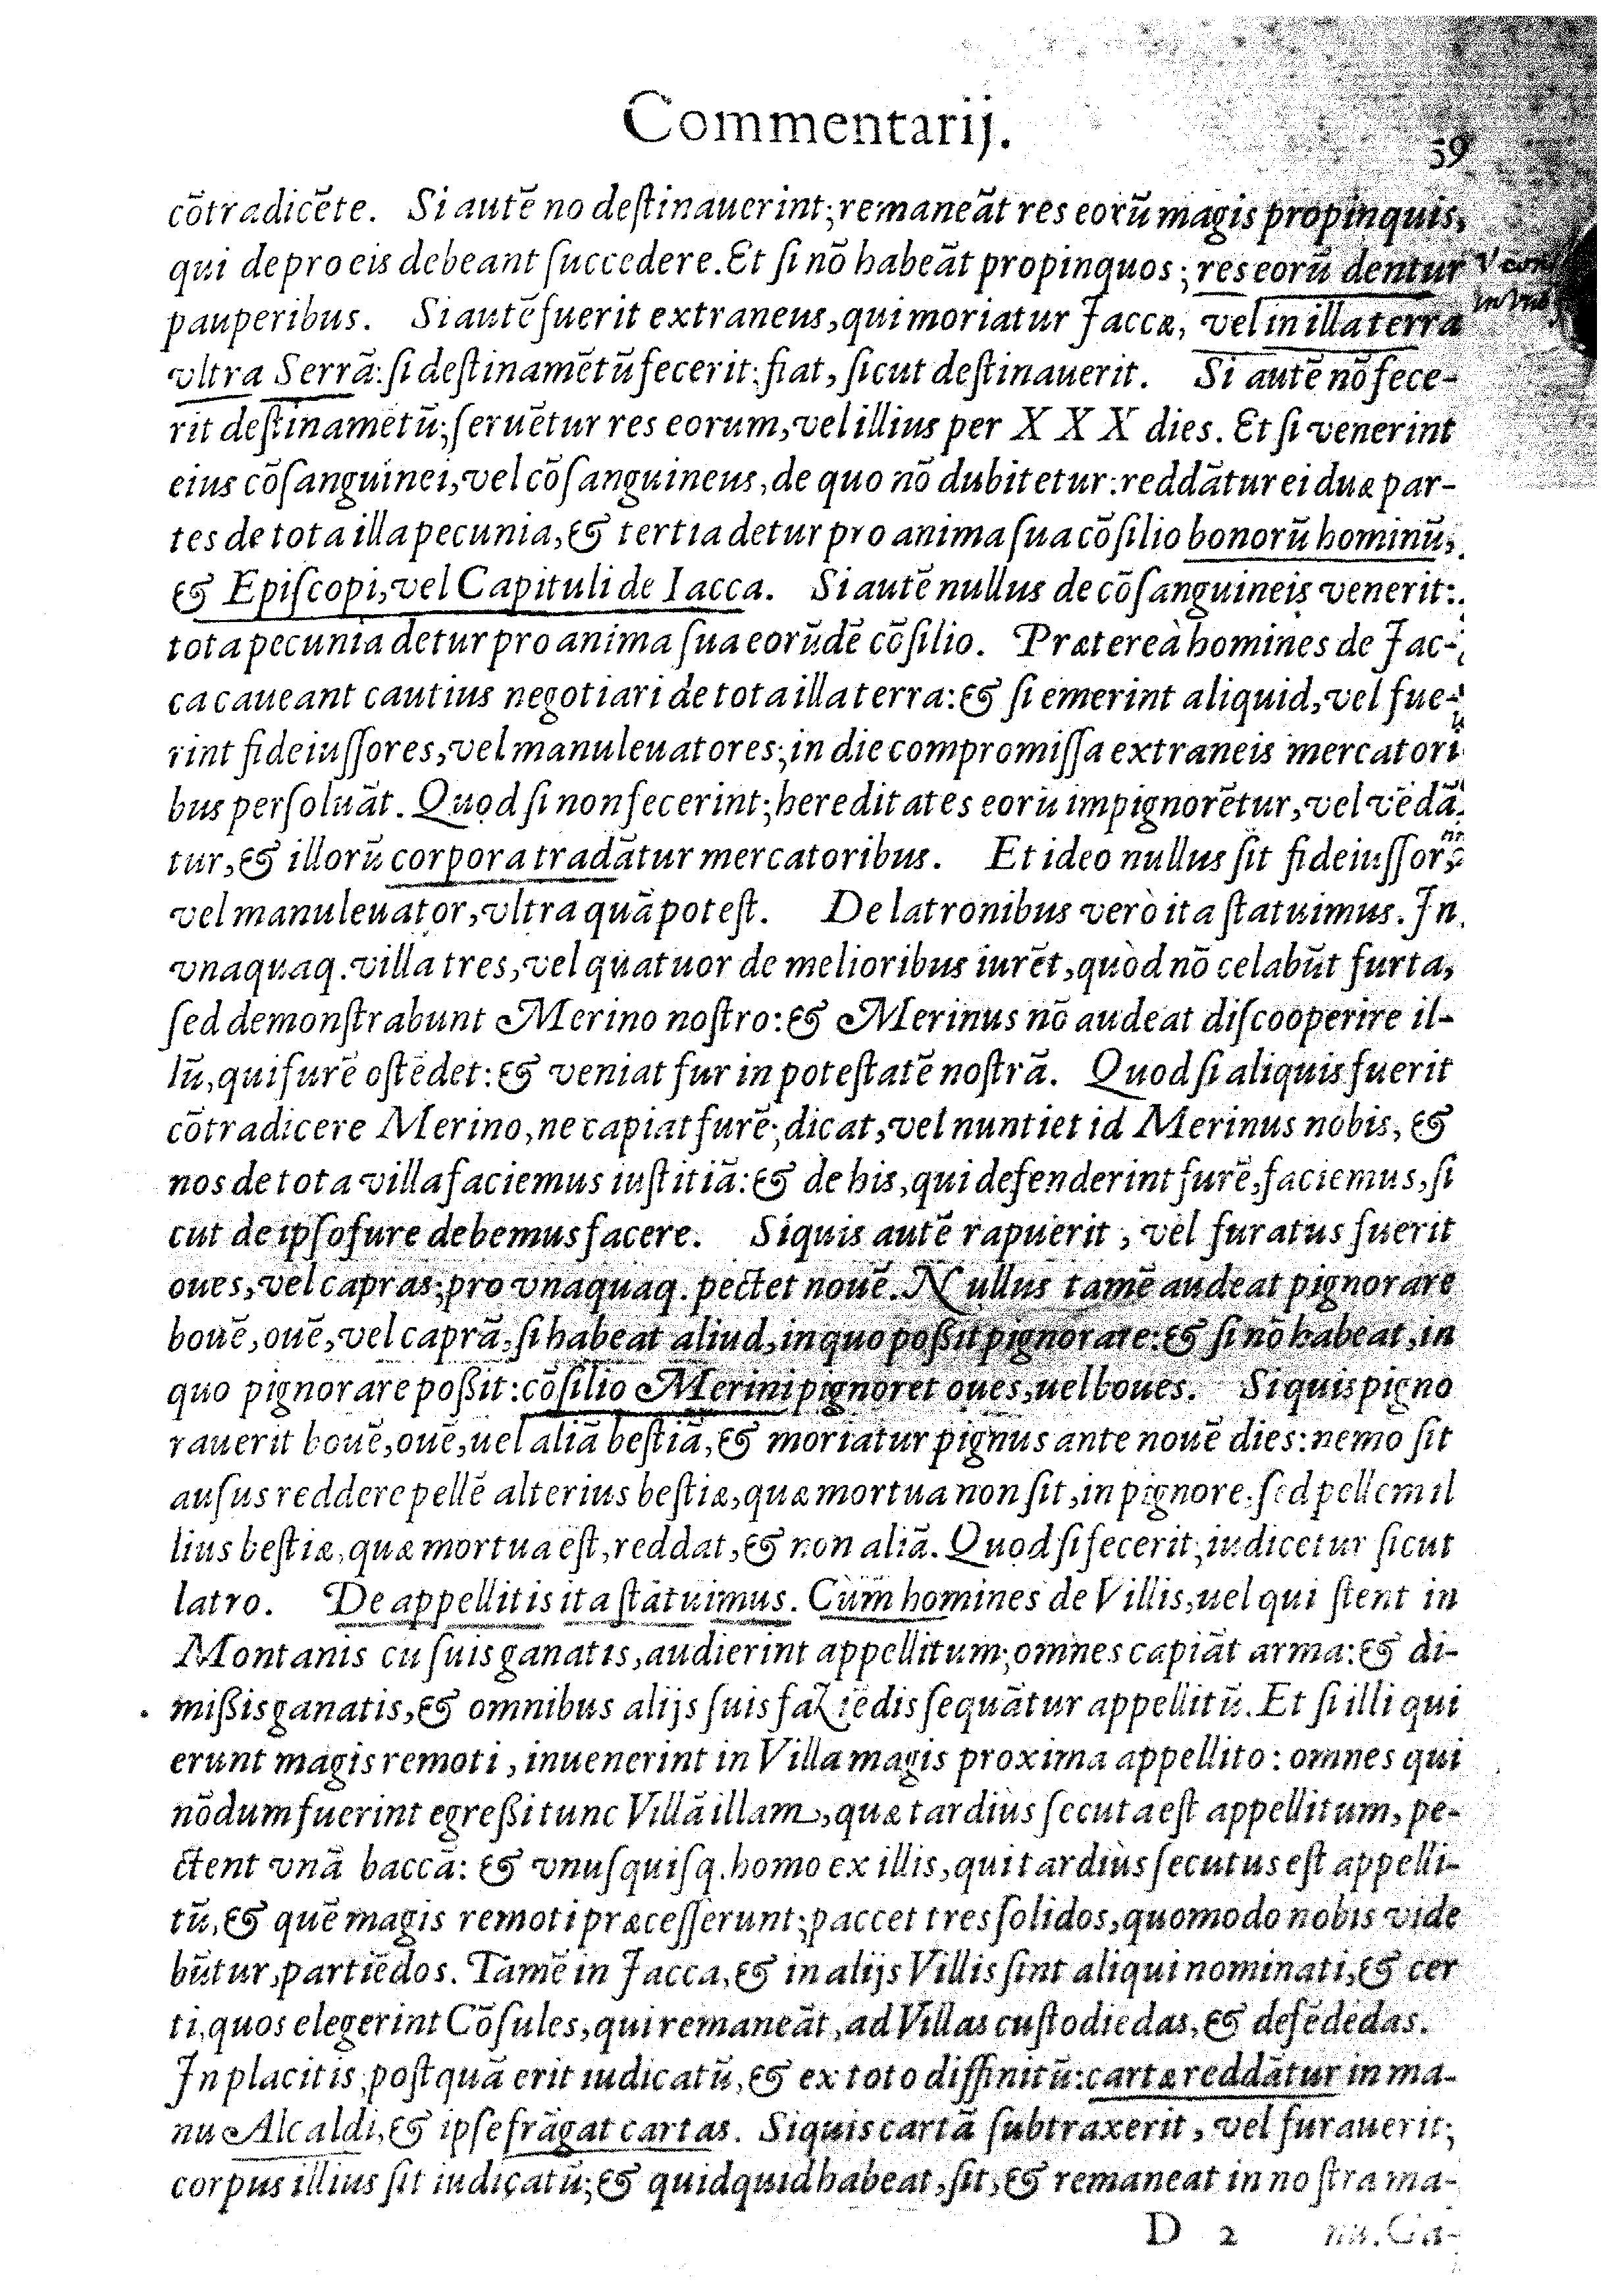 Commentarij.
59
cõtradicẽte. Si autẽ no deſtinauerint; remaneãt res eorũ magis propinquis,
qui de pro eis debeant ſuccedere. Et ſi nõ habeãt propinquos; res eorũ dentur
pauperibus. Si autẽ fuerit extraneus, qui moriatur Jaccæ, vel in illa terra
vltra Serrã: ſi deſtinamẽtũ fecerit; fiat, ſicut deſtinauerit. Si autẽ nõ fece-
rit deſtinametũ; ſeruẽtur res eorum, vel illius per X X X dies. Et ſi venerint
eius cõſanguinei, vel cõſanguineus, de quo nõ dubitetur: reddãtur ei duæ par-
tes de tota illa pecunia, & tertia detur pro anima ſua cõſilio bonorũ hominũ,
& Epiſcopi, vel Capituli de Iacca. Si autẽ nullus de cõſanguineis venerit:
tota pecunia detur pro anima ſua eorũdẽ cõſilio. Prætereà homines de Jac-
ca caueant cautius negotiari de tota illa terra: & ſi emerint aliquid, vel fue-
rint fideiuſſores, vel manuleuatores; in die compromiſſa extraneis mercatori
bus perſoluãt. Quod ſi non fecerint; hereditates eorũ impignorẽtur, vel vẽdã
tur, & illorũ corpora tradãtur mercatoribus. Et ideo nullus ſit fideiuſſor,
vel manuleuator, vltra quã poteſt. De latronibus verò ita ſtatuimus. Jn
vnaquaq. villa tres, vel quatuor de melioribus iurẽt, quòd nõ celabũt furta,
ſed demonſtrabunt Merino noſtro: & Merinus nõ audeat diſcooperire il-
lũ, qui furẽ oſtẽdet: & veniat fur in poteſtatẽ noſtrã. Quod ſi aliquis fuerit
cõtradicere Merino, ne capiat furẽ; dicat, vel nuntiet id Merinus nobis, &
nos de tota villa faciemus iuſtitiã: & de his, qui defenderint furẽ, faciemus, ſi
cut de ipſo fure debemus facere. Siquis autẽ rapuerit, vel furatus fuerit
oues, vel capras; pro vnaquaq. pectet nouẽ. Nullus tamẽ audeat pignorare
bouẽ, ouẽ, vel caprã, ſi habeat aliud, in quo poßit pignorare: & ſi nõ habeat, in
quo pignorare poßit: cõſilio Merini pignoret oues, uel boues. Siquis pigno
rauerit bouẽ, ouẽ, uel aliã beſtiã, & moriatur pignus ante nouẽ dies: nemo ſit
auſus reddere pellẽ alterius beſtiæ, quæ mortua non ſit, in pignore, ſed pellem il
lius beſtiæ, quæ mortua eſt, reddat, & non aliã. Quod ſi fecerit; iudicetur ſicut
latro. De appellitis ita ſtatuimus. Cum homines de Villis, uel qui ſtent in
Montanis cu ſuis ganatis, audierint appellitum; omnes capiãt arma: & di-
mißis ganatis, & omnibus alijs ſuis faZiẽdis ſequãtur appellitũ. Et ſi illi qui
erunt magis remoti, inuenerint in Villa magis proxima appellito: omnes qui
nõdum fuerint egreßi tunc Villã illam, quæ tardius ſecuta eſt appellitum, pe-
ctent vnã baccã: & vnuſquiſq. homo ex illis, qui tardiùs ſecutus eſt appelli-
tũ, & quẽ magis remoti præceſſerunt; paccet tres ſolidos, quomodo nobis vide
bũtur, partiẽdos. Tamẽ in Jacca, & in alijs Villis ſint aliqui nominati, & cer
ti, quos elegerint Cõſules, qui remaneãt, ad Villas cuſtodiedas, & defẽdedas.
Jn placitis, poſtquã erit iudicatũ, & ex toto diffinitũ: cartæ reddãtur in ma-
nu Alcaldi, & ipſe frãgat cartas. Siquis cartã ſubtraxerit, vel furauerit;
corpus illius ſit iudicatũ; & quidquid habeat, ſit, & remaneat in noſtra ma-
D 2 nu. Ga-